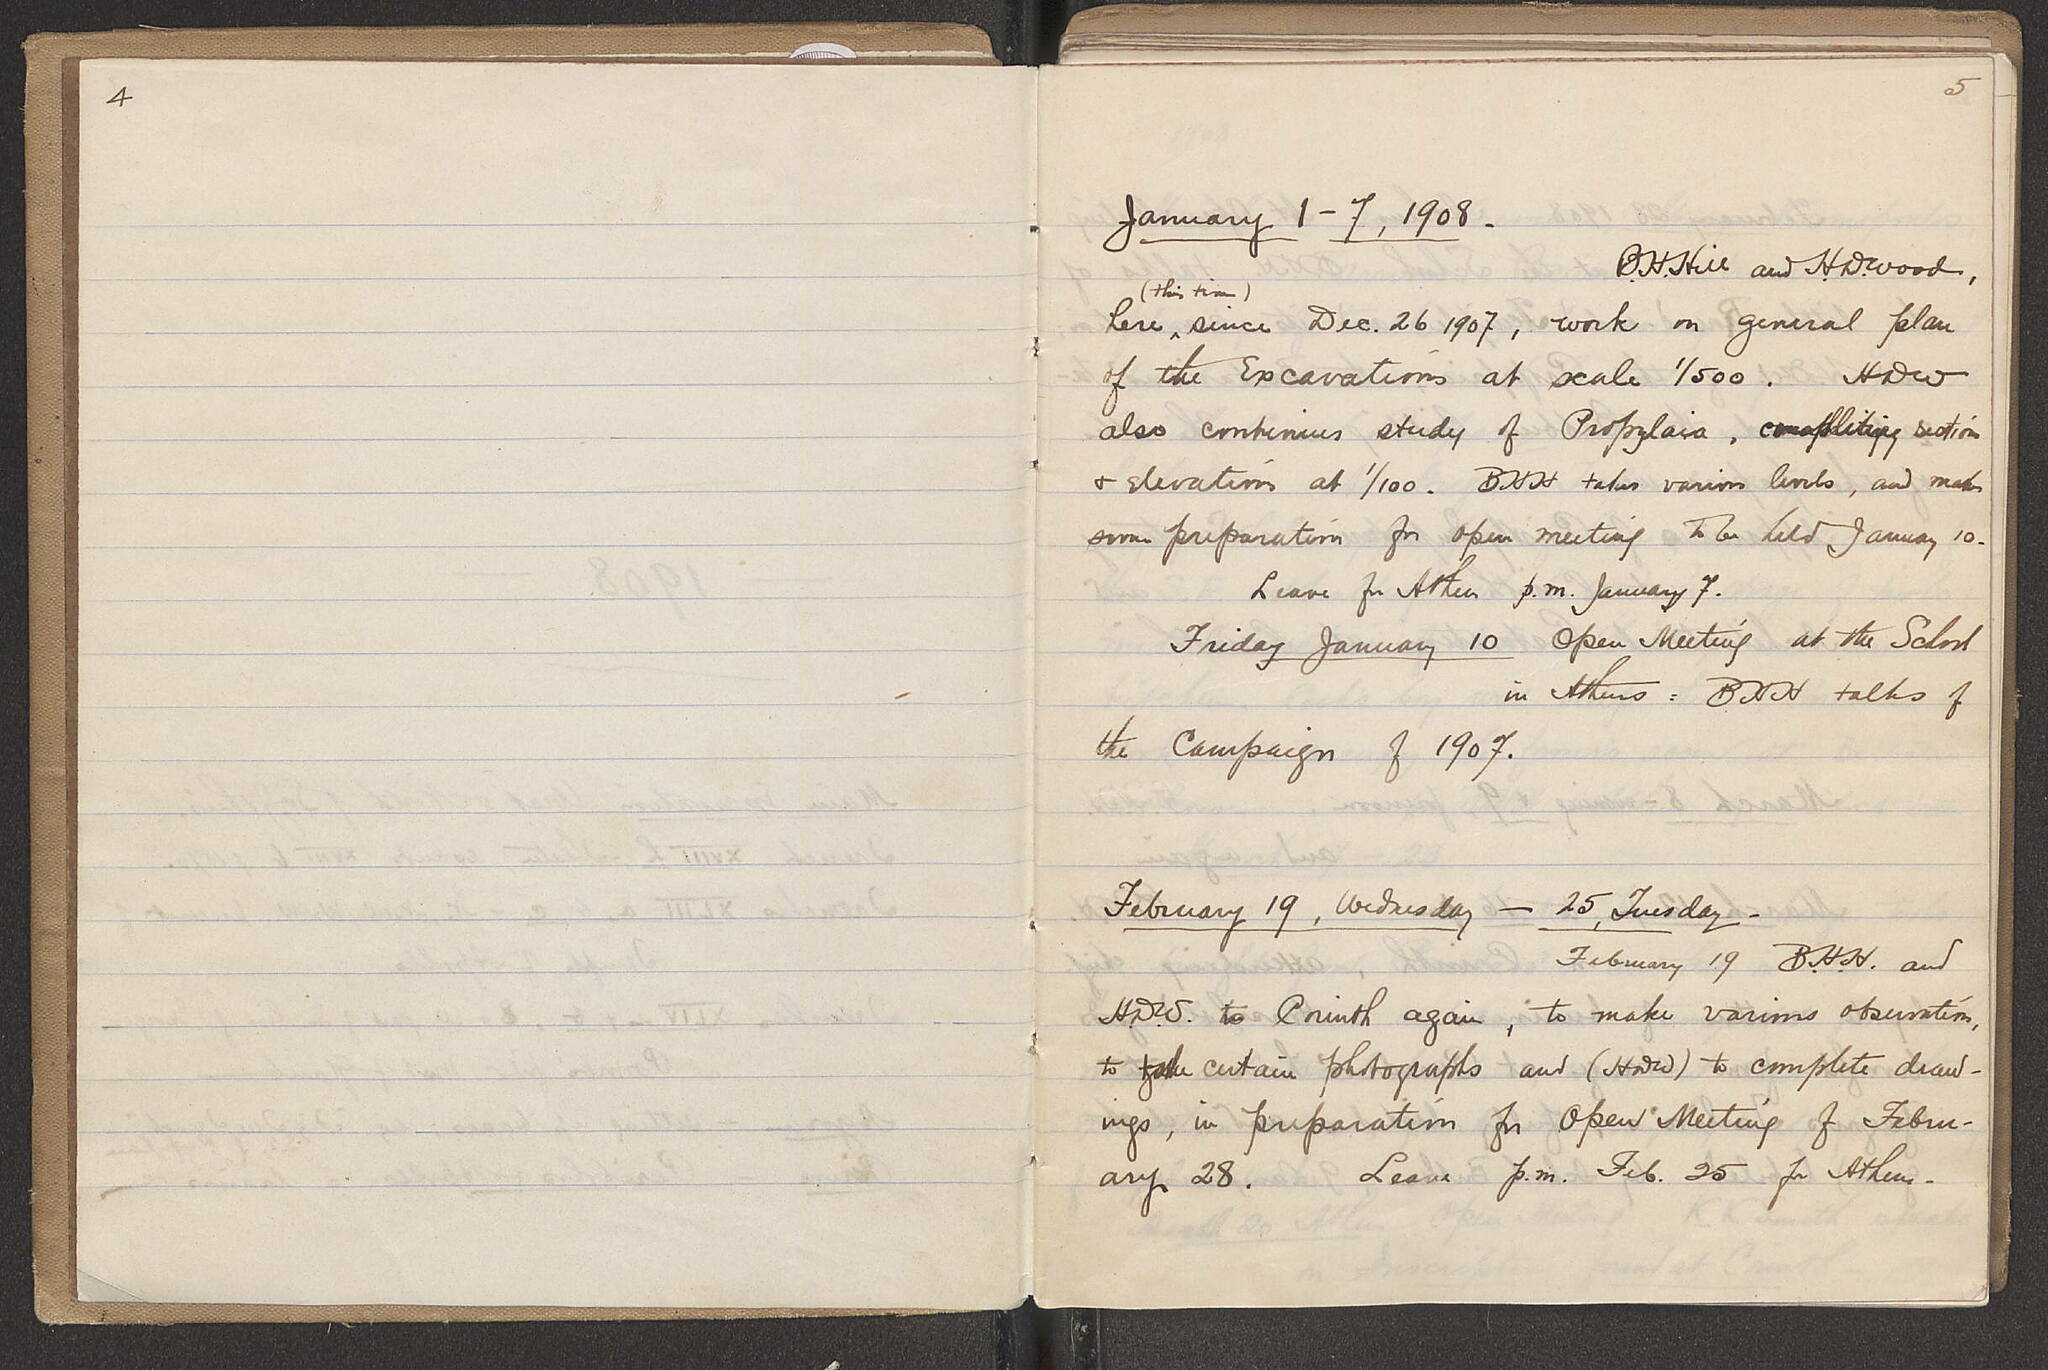 4
5
January 1 - 7, 1908.
B.H.Hill and H.D.Wood,
(this time)
here ^ since Dec. 26 1907, work on general plan
of the Excavations at scale 1/500. HDW
also continues study of Propylaia, completing section
+ elevations at 1/100. BHH takes various levels, and makes
some preparation for open meeting to be held January 10.
Leave for Athens p.m. January 7.
Friday January 10 Open Meeting at the School
in Athens: BHH talks of
the Campaign of 1907.
February 19, Wednesday — 25, Tuesday -
February 19 B.H.H. and
H.D.W. to Corinth again, to make various observations,
to take certain photographs and (HDW) to complete draw-
ings, in preparation for Open Meeting of Febru-
ary 28. Leave p.m. Feb. 25 for Athens.